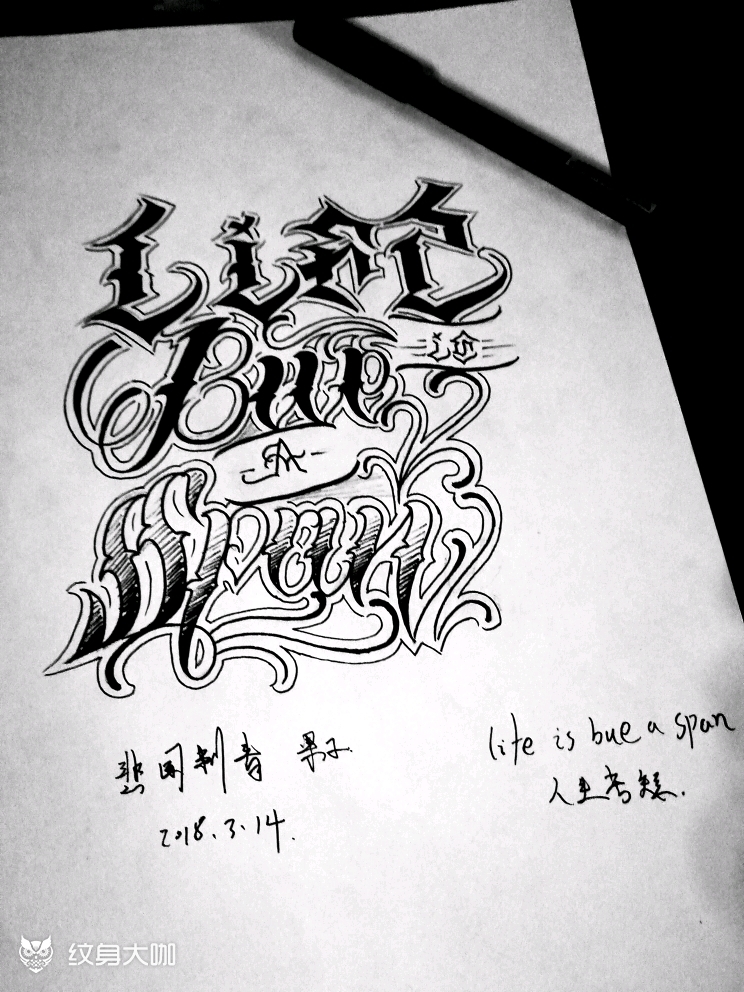 LiFE
is
Bue
A
Span
国刺青 果子
2018.3.14.
life is bue a span
人生苦短.
纹身大咖